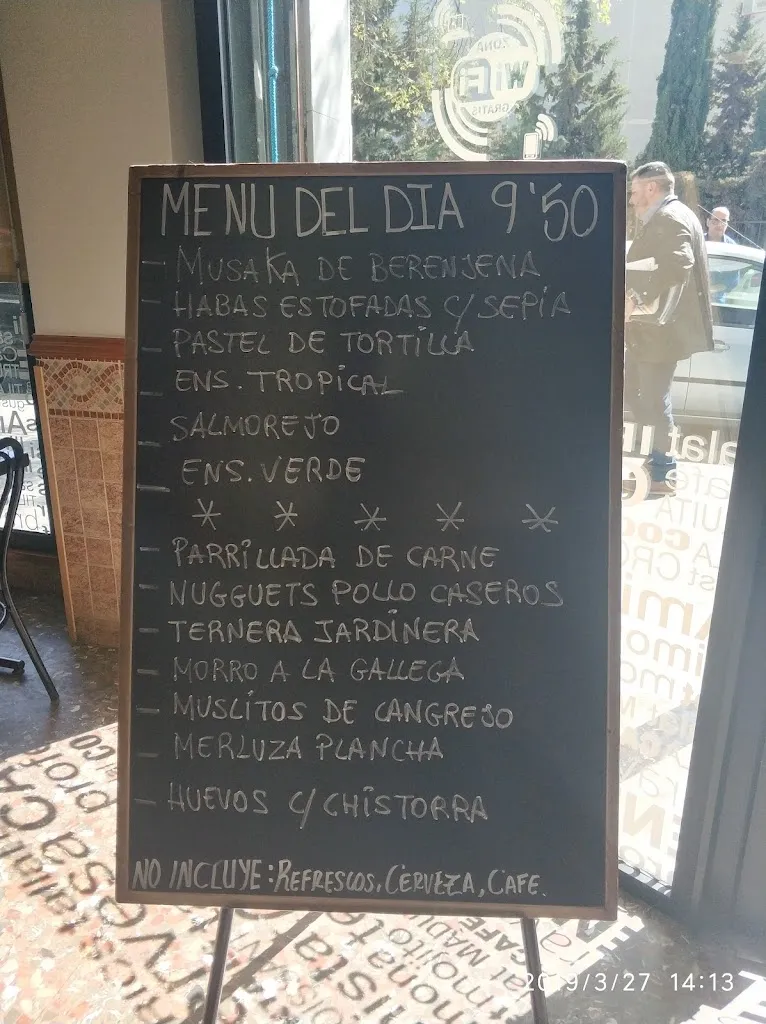 ZONA
WiFi
GRATIS
MENU DEL DIA 9'50
- MUSAKA DE BERENJENA
- HABAS ESTOFADAS C/ SEPIA
- PASTEL DE TORTILLA
- ENS. TROPICAL
- SALMOREJO
- ENS. VERDE
* * * * *
- PARRILLADA DE CARNE
- NUGGUETS POLLO CASEROS
- TERNERA JARDINERA
- MORRO A LA GALLEGA
- MUSLITOS DE CANGREJO
- MERLUZA PLANCHA
- HUEVOS C/ CHISTORRA
NO INCLUYE: REFRESCOS, CERVEZA, CAFE.
2019/3/27 14:13